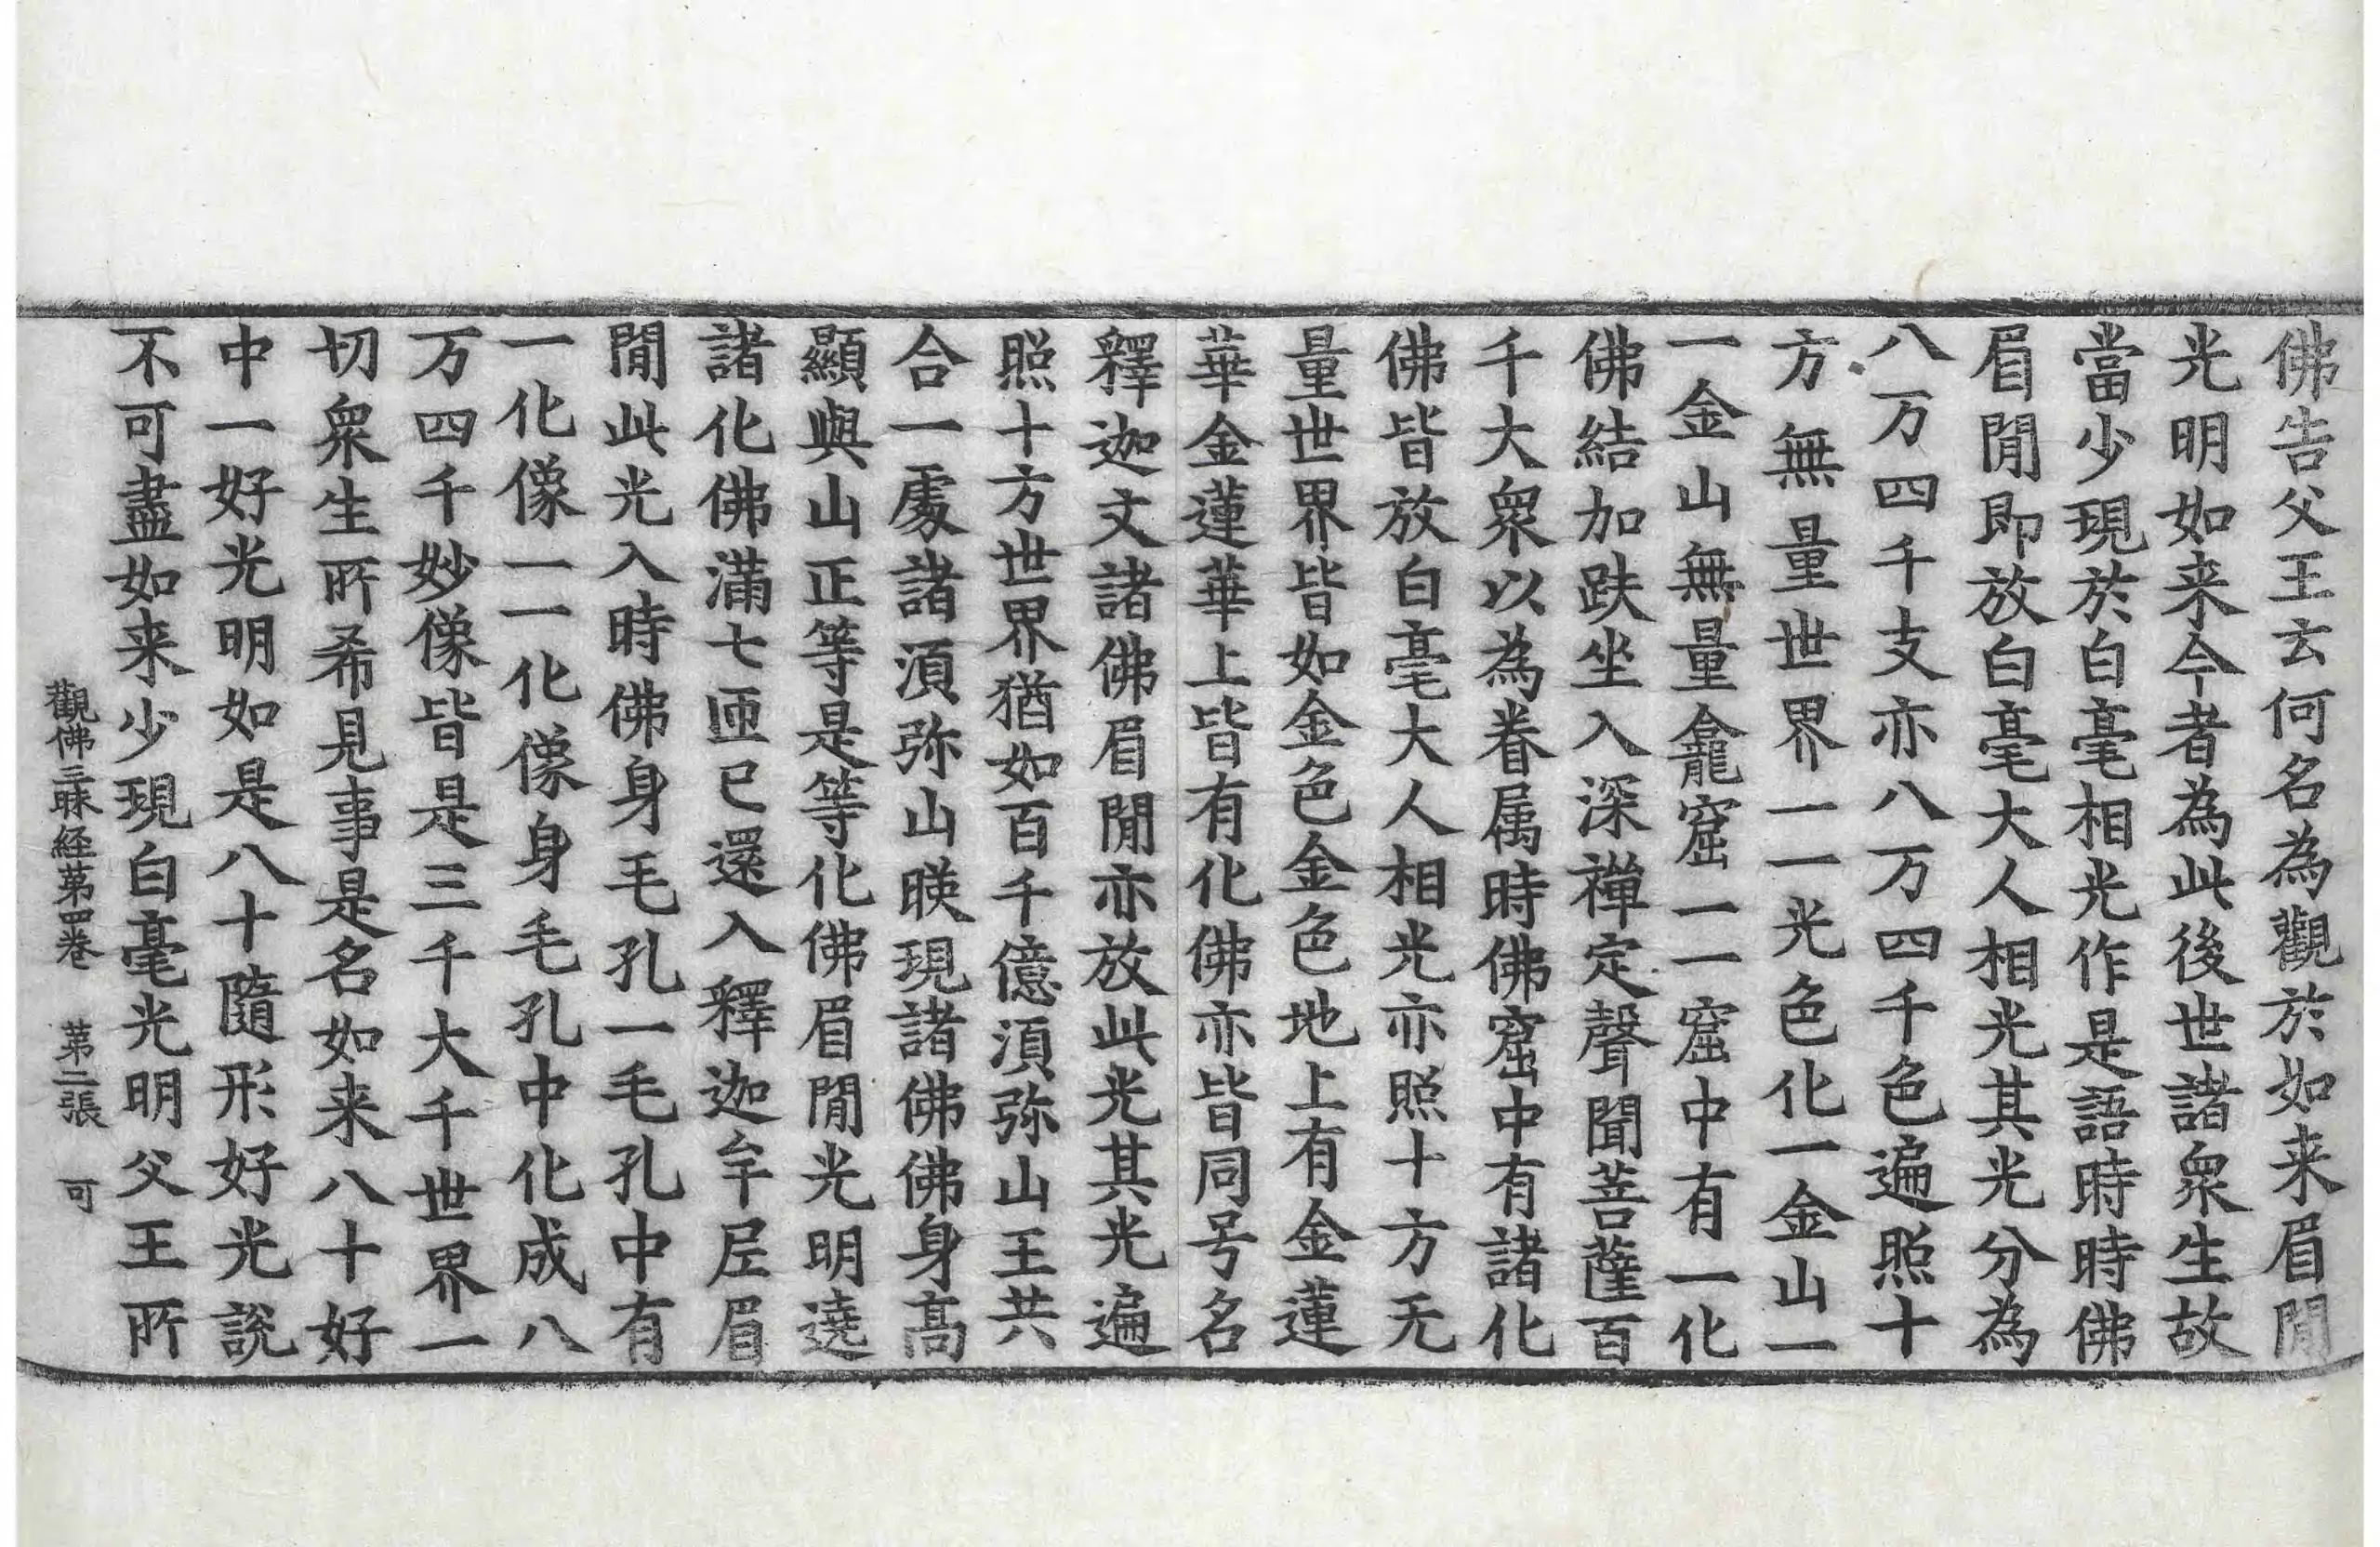 佛告父王云何名為觀於如来眉閒
光明如来今者為此後世諸衆生故
當少現於白毫相光作是語時時佛
眉閒即放白毫大人相光其光分為
八万四千支亦八万四千色遍照十
方無量世界一一光色化一金山一
一金山無量龕窟一一窟中有一化
佛結加趺坐入深禪定聲聞菩薩百
千大衆以為眷属時佛窟中有諸化
佛皆放白毫大人相光亦照十方无
量世界皆如金色金色地上有金蓮
華金蓮華上皆有化佛亦皆同号名
釋迦文諸佛眉閒亦放此光其光遍
照十方世界猶如百千億湏弥山王共
合一處諸湏弥山暎現諸佛佛身髙
顯與山正等是等化佛眉閒光明遶
諸化佛滿七匝已還入釋迦牟𡰱眉
閒此光入時佛身毛孔一毛孔中有
一化像一一化像身毛孔中化成八
万四千妙像皆是三千大千世界一
切衆生所希見事是名如来八十好
中一好光明如是八十隨形好光說
不可盡如来少現白毫光明父王所
觀佛三昧経苐四卷 苐二張 可